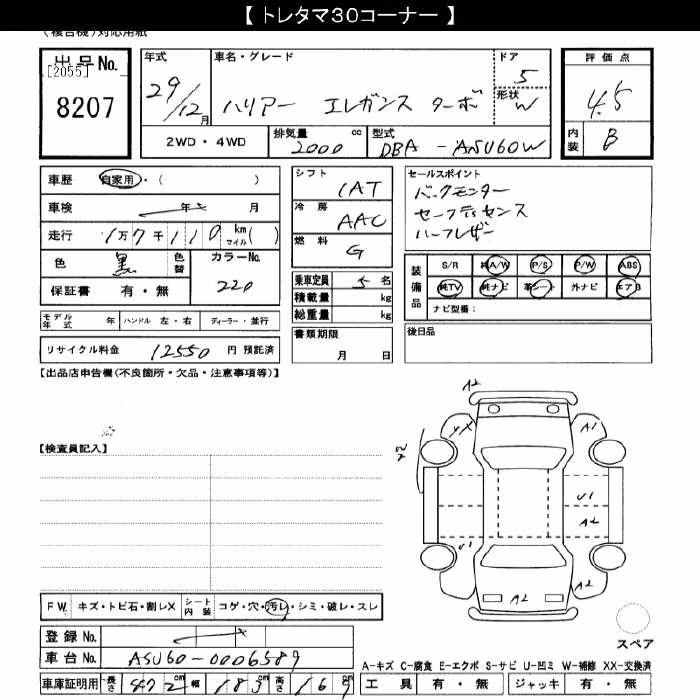 【 トレタマ30コーナー 】
(複合機)対応用紙
出品No.
[2055]
8207
年式
29/12月
車名・グレード
ハリアー エレガンス ターボ
ドア
5
形状
W
評価点
4.5
内装
B
2WD・4WD
排気量
2000
cc
型式
DBA-ASU60W
車歴 自家用・( )
車検 年 月
走行 1万7千110 km マイル( )
色 黒 色替 カラーNo. 220
保証書 有・無
シフト
1AT
冷房
AAC
燃料
G
セールスポイント
バックモニター
セーフティセンス
ハーフレザー
乗車定員 5 名
積載量 kg
総重量 kg
書類期限
月 日
装備品
S/R 純A/W P/S P/W ABS
純TV 純ナビ 革シート 外ナビ エアB
ナビ型番:
後日品
モデル年式 年 ハンドル 左・右 ディーラー・並行
リサイクル料金 12550 円 預託済
【出品店申告欄(不良箇所・欠品・注意事項等)】
【検査員記入】
A2
XX
A1
A2
U1
A2
U1
A2
A2
スペア
FW. キズ・トビ石・割レX シート内装 コゲ・穴・汚レ・シミ・破レ・スレ
登録No.
車台No. ASU60-0006589
車庫証明用 長さ 472 cm 幅 183 cm 高さ 169
A-キズ C-腐食 E-エクボ S-サビ U-凹ミ W-補修 XX-交換済
工具 有・無 ジャッキ 有・無